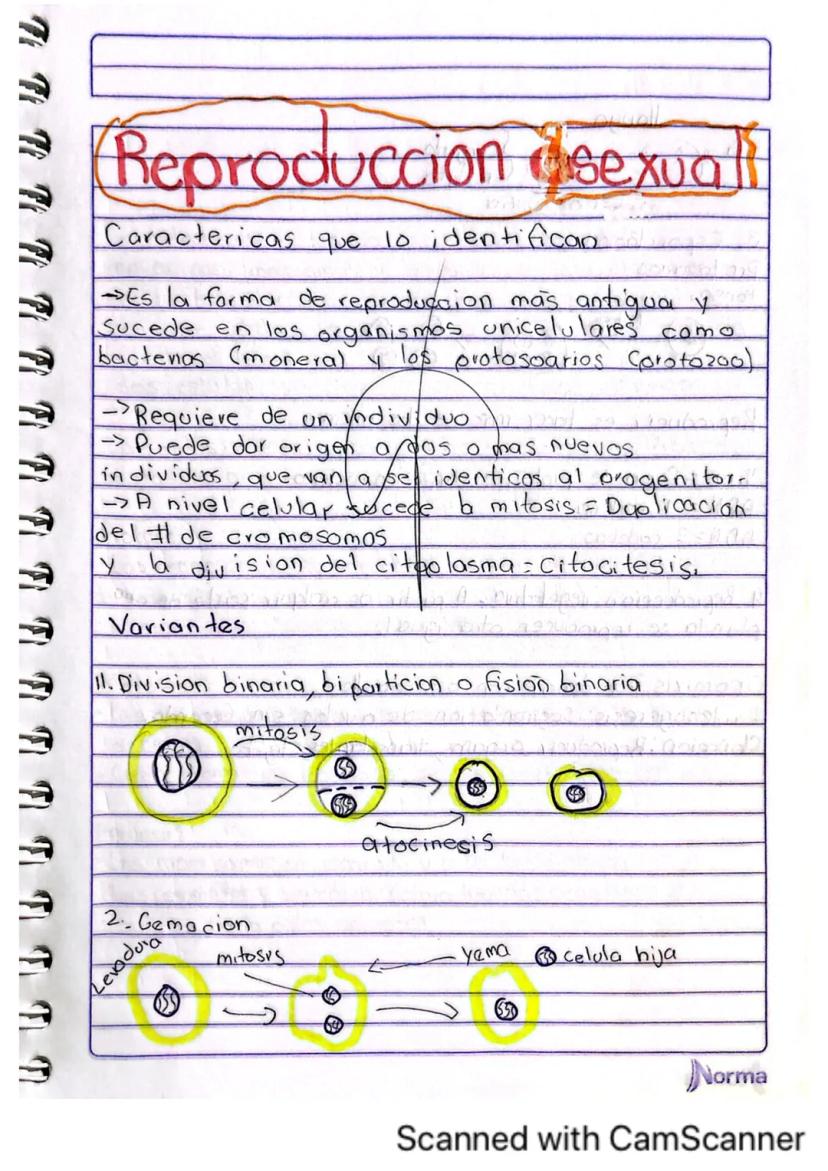 Reproduccion asexual
Caractericas que lo identifican
→Es la forma de reproduccion más antigua y
sucede en los organismos unicelulares como
bacterias (monera) y los protosoarios (protozoo)
→Requiere de un individuo
→ Puede dar origen a dos o mas nuevos
individuos, que van a ser identicos al progenitor.
→ A nivel celular sucede la mitosis = Duplicación
del # de cromosomos
y la division del citoplasma = Citocitesis.
Variantes
11. Division binaria, biparticion o fision binaria
mitosis
citocinesis
2.- Gemacion
Levadura
mitosis
yema
celula hija
Norma
Scanned with CamScanner